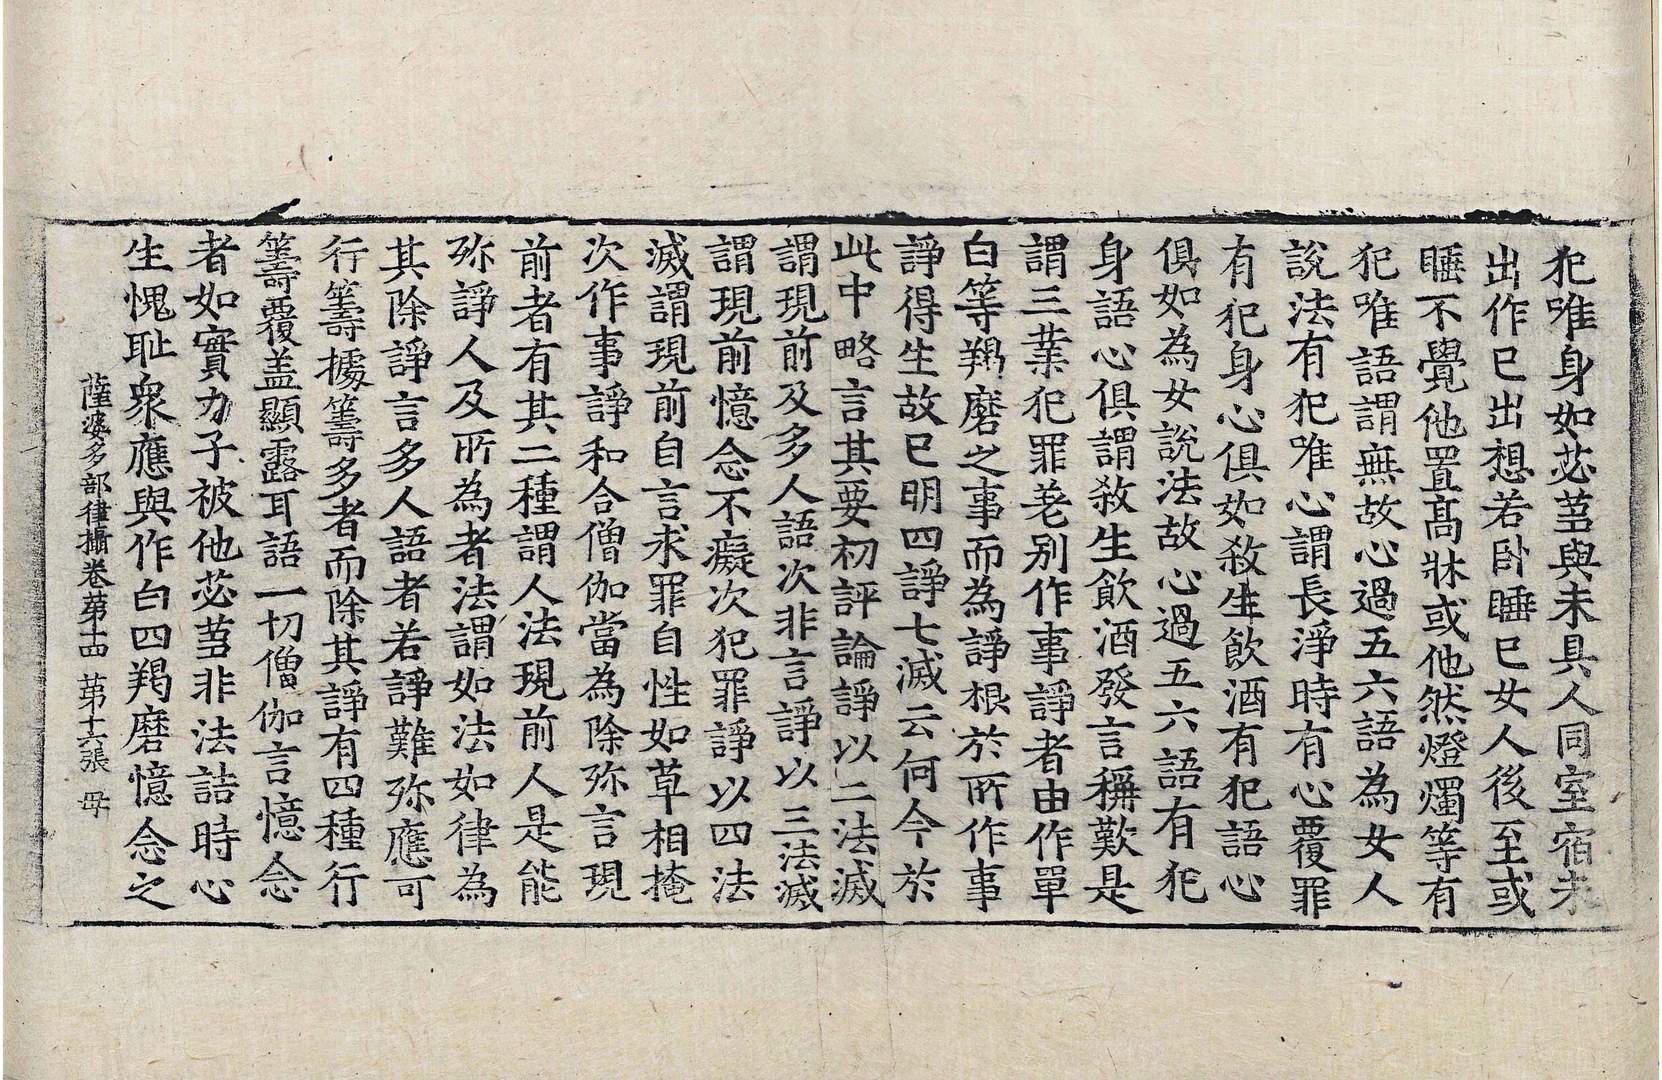 犯唯身如苾芻與未具人同室宿未
出作已出想若卧睡已女人後至或
睡不覺他置髙牀或他然燈燭等有
犯唯語謂無故心過五六語為女人
說法有犯唯心謂長淨時有心覆罪
有犯身心俱如殺生飲酒有犯語心
俱如為女說法故心過五六語有犯
身語心俱謂殺生飲酒發言稱歎是
謂三業犯罪差别作事諍者由作單
白等羯磨之事而為諍根於所作事
諍得生故已明四諍七滅云何今於
此中略言其要初評論諍以二法滅
謂現前及多人語次非言諍以三法滅
謂現前憶念不癡次犯罪諍以四法
滅謂現前自言求罪自性如草相掩
次作事諍和合僧伽當為除殄言現
前者有其二種謂人法現前人是能
殄諍人及所為者法謂如法如律為
其除諍言多人語者若諍難殄應可
行籌據籌多者而除其諍有四種行
籌覆盖顯露耳語一切僧伽言憶念
者如實力子被他苾芻非法詰時心
生愧耻衆應與作白四羯磨憶念之
薩婆多部律攝卷苐十四 苐十六張 母